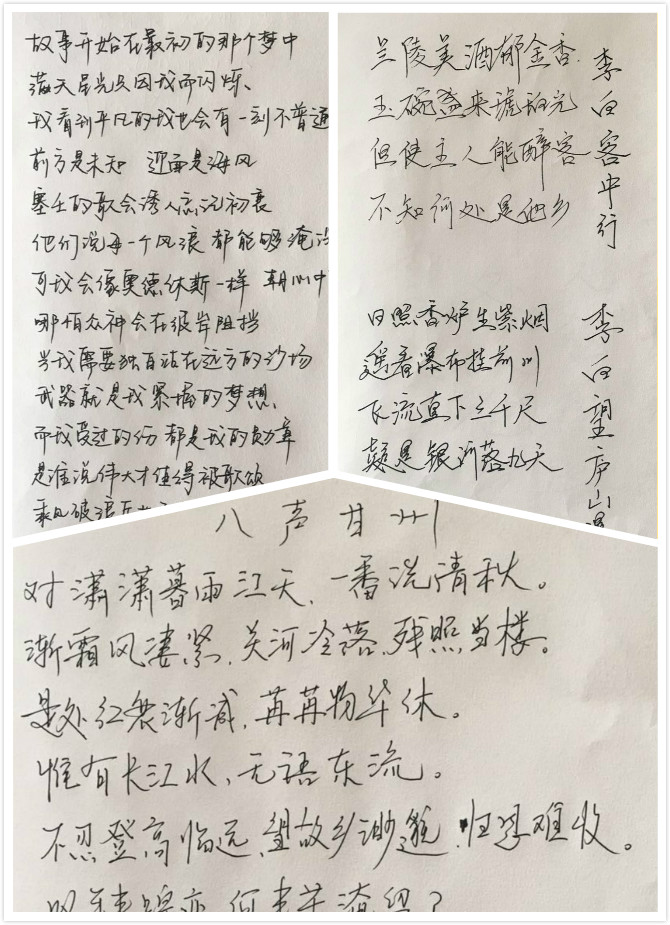 故事开始在最初的那个梦中
满天星光只因我而闪烁、
我看到平凡的我也会有一刻不普通
前方是未知 迎面是海风
塞壬的歌会诱人忘记初衷
他们说每一个风浪 都能够淹没
可我会像奥德休斯一样 朝心中
哪怕众神会在彼岸阻挡
当我需要独自站在远方的沙场
武器就是我紧握的梦想、
而我受过的伤 都是我的勋章
是谁说伟大才值得被歌颂
乘风破浪
兰陵美酒郁金香.
玉碗盛来琥珀光
但使主人能醉客
不知何处是他乡
李白客中行
日照香炉生紫烟
遥看瀑布挂前川
飞流直下三千尺
疑是银河落九天
李白望庐山瀑
八声甘州
对潇潇暮雨江天、一番洗清秋。
渐霜风凄紧、关河冷落、残照当楼。
是处红衰渐减、苒苒物华休。
惟有长江水、无语东流。
不忍登高临远、望故乡渺邈、归思难收。